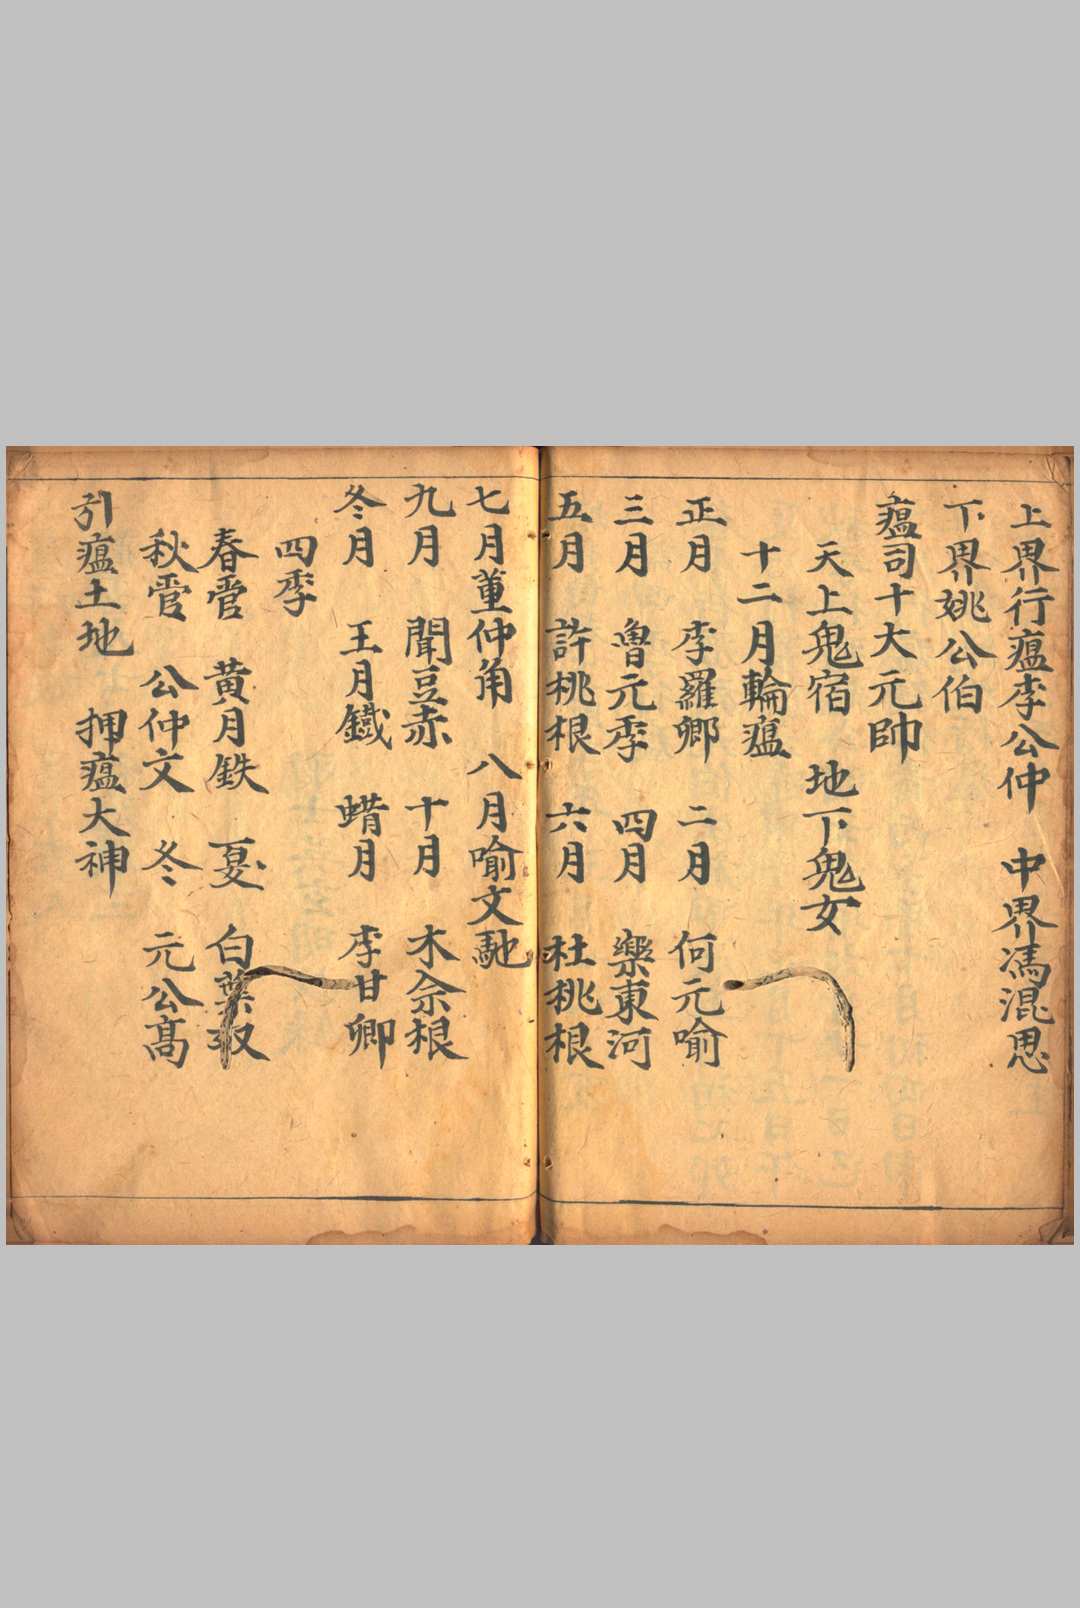 上界行瘟李公仲　中界馮混思
下界姚公伯
瘟司十大元帥
天上鬼宿　地下鬼女
十二月輪瘟
正月　李羅卿　二月　何元喻
三月　魯元季　四月　樂東河
五月　許桃根　六月　杜桃根
七月董仲角　八月喻文馳
九月　聞豆赤　十月　木佘根
冬月　王月鐵　蜡月　李甘卿
四季
春管　黄月鉄　夏　白葉
秋管　公仲文　冬　元公髙
引瘟土地　押瘟大神